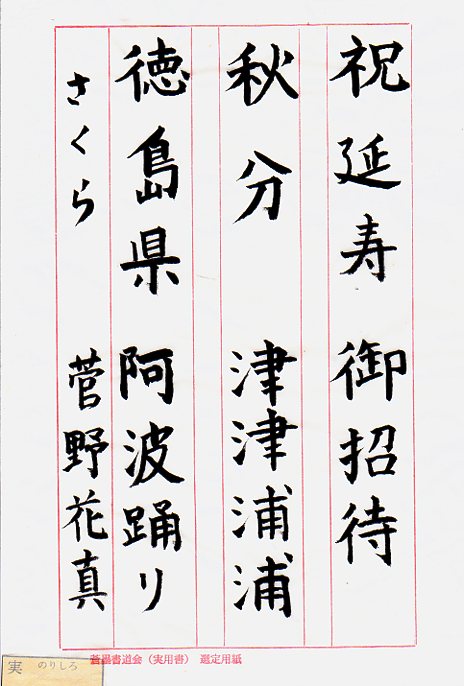 祝延寿 御招待
秋分 津津浦浦
徳島県 阿波踊り
さくら 菅野花真
蒼墨書道会(実用書) 選定用紙
実 のりしろ